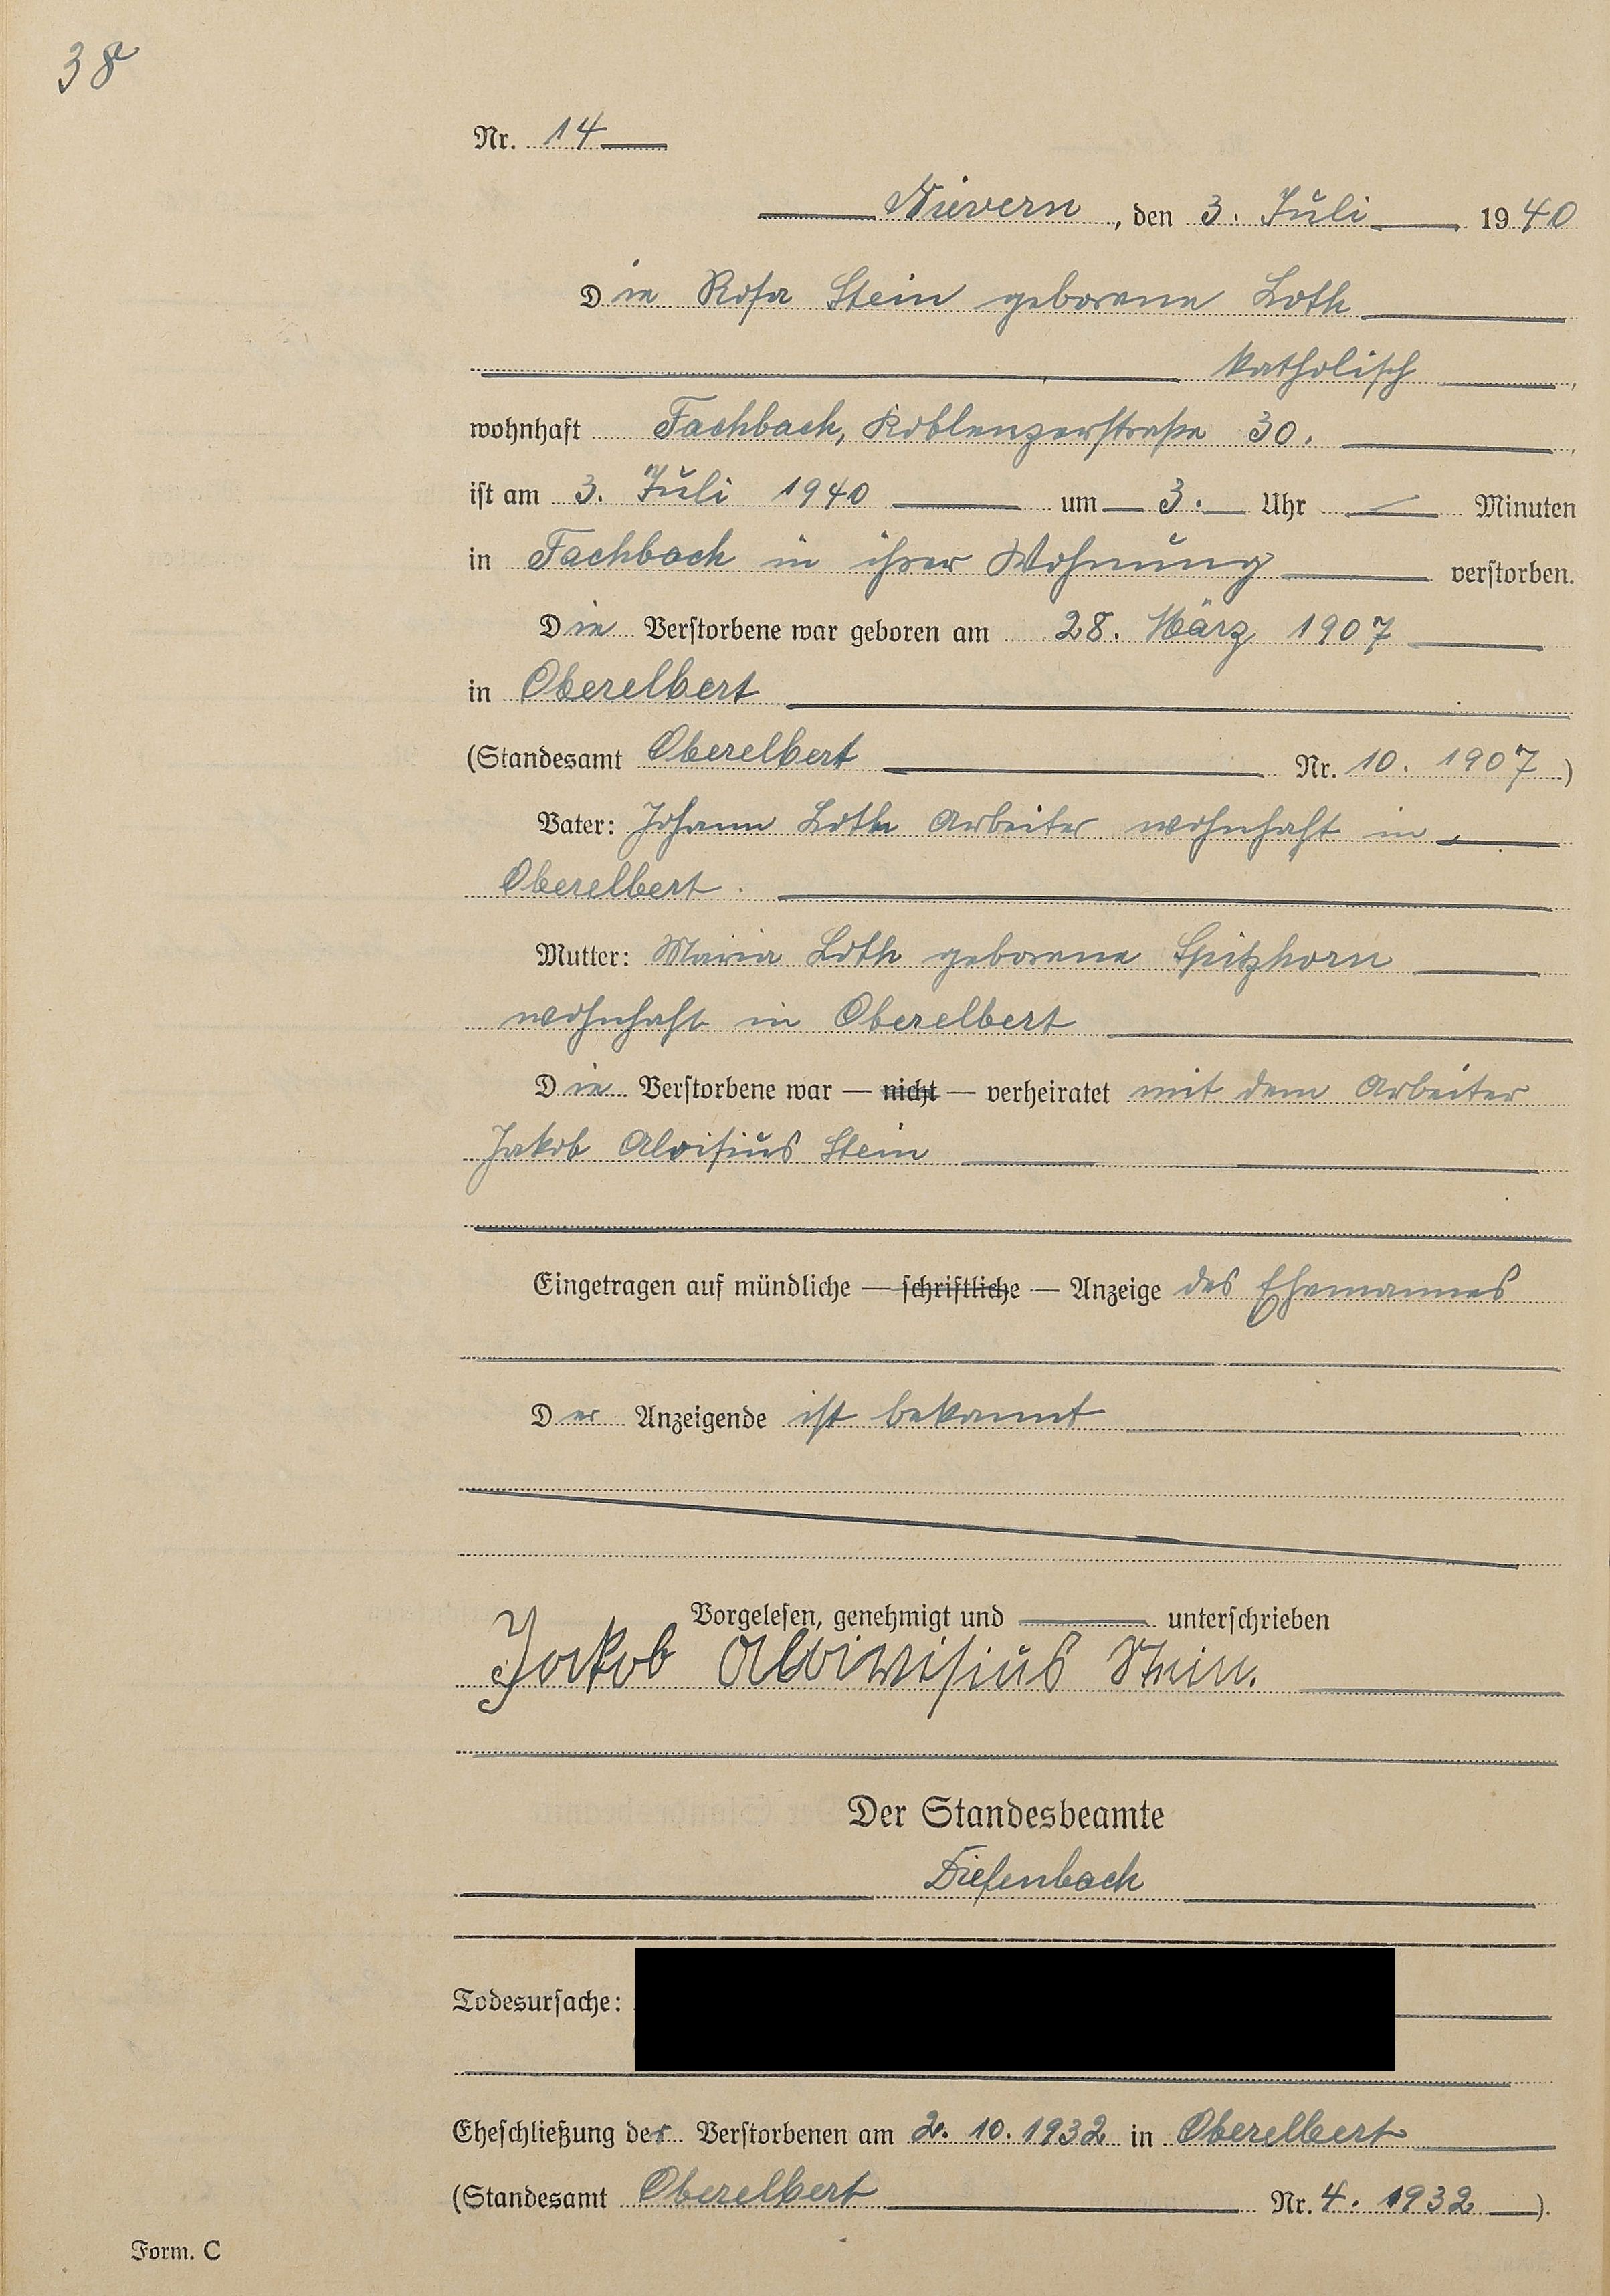 38
Nr. 14
Nievern, den 3. Juli 1940
Die Rosa Stein geborene Loth
katholisch,
wohnhaft Fachbach, Koblenzerstraße 30.,
ist am 3. Juli 1940 um 3. Uhr — Minuten
in Fachbach in ihrer Wohnung verstorben.
Die Verstorbene war geboren am 28. März 1907
in Oberelbert
(Standesamt Oberelbert Nr. 10. 1907)
Vater: Johann Loth Arbeiter wohnhaft in
Oberelbert.
Mutter: Maria Loth geborene Spitzhorn
wohnhaft in Oberelbert
Die Verstorbene war — nicht — verheiratet mit dem Arbeiter
Jakob Aloisius Stein
Eingetragen auf mündliche — schriftliche — Anzeige des Ehemannes
Der Anzeigende ist bekannt
Vorgelesen, genehmigt und unterschrieben
Jakob Stein.
Der Standesbeamte
Diefenbach
Todesursache:
Eheschließung der Verstorbenen am 2. 10. 1932 in Oberelbert
(Standesamt Oberelbert Nr. 4. 1932).
Form. C